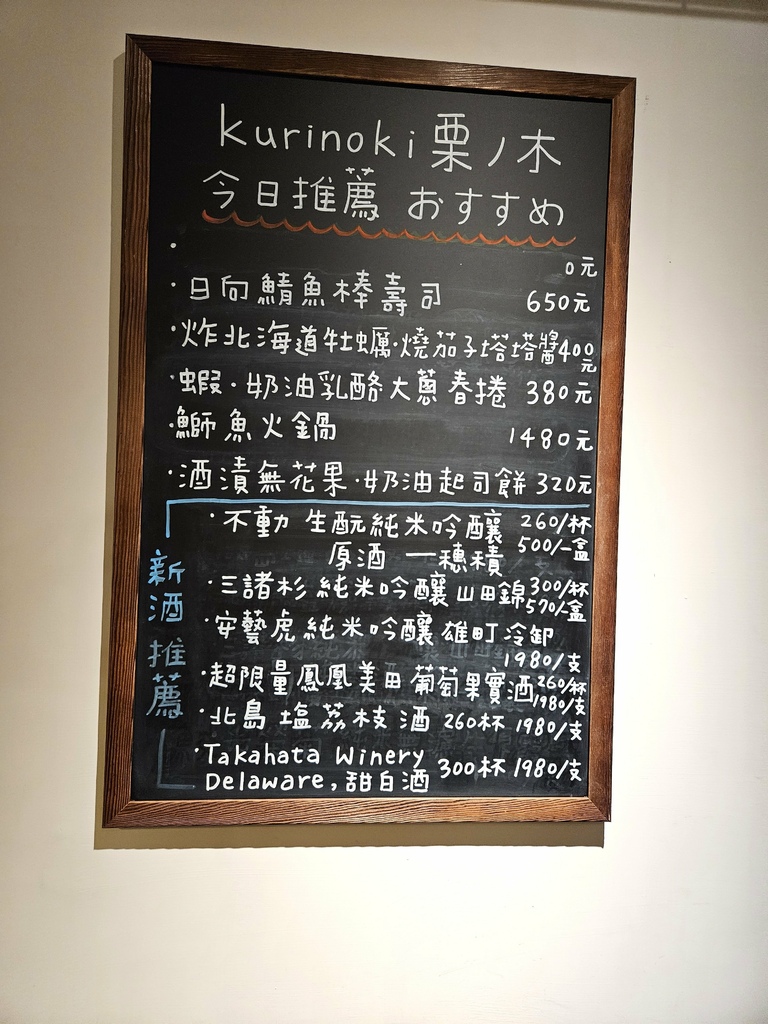 kurinoki 栗ノ木
今日推薦 おすすめ
·
0元
·日向鯖魚棒壽司 650元
·炸北海道牡蠣·燒茄子塔塔醬 400元
·蝦·奶油乳酪大蔥春捲 380元
·鰤魚火鍋 1480元
·酒漬無花果·奶油起司餅 320元
新酒推薦
·不動 生酛純米吟釀 260/杯
原酒 一穗積 500/一盒
·三諸杉 純米吟釀 山田錦 300/杯
570/一盒
·安藝虎 純米吟釀 雄町 冷卸
1980/支
·超限量鳳凰美田 葡萄果實酒 260/杯
1980/支
·北島 塩荔枝酒 260杯 1980/支
·Takahata Winery
Delaware,甜白酒 300杯 1980/支